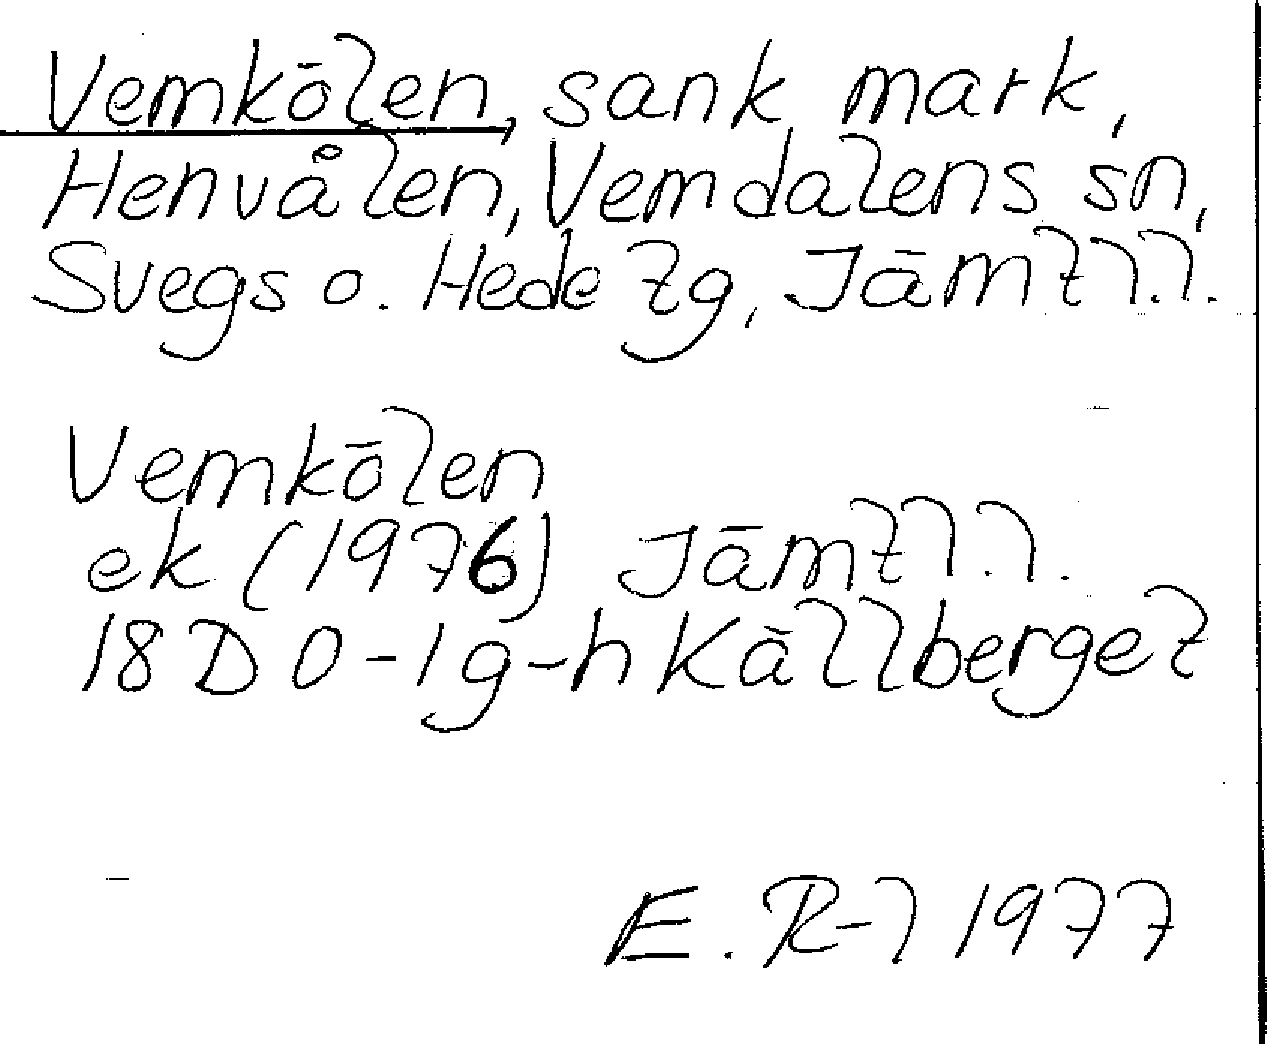 Vemkölen, sank mark,
Henvålen, Vemdalens sn,
Svegs o. Hede tg, Jämtl.l.
Vemkölen
ek (1976) Jämtl.l.
18D 0-1g-h Källberget
E. R-l 1977